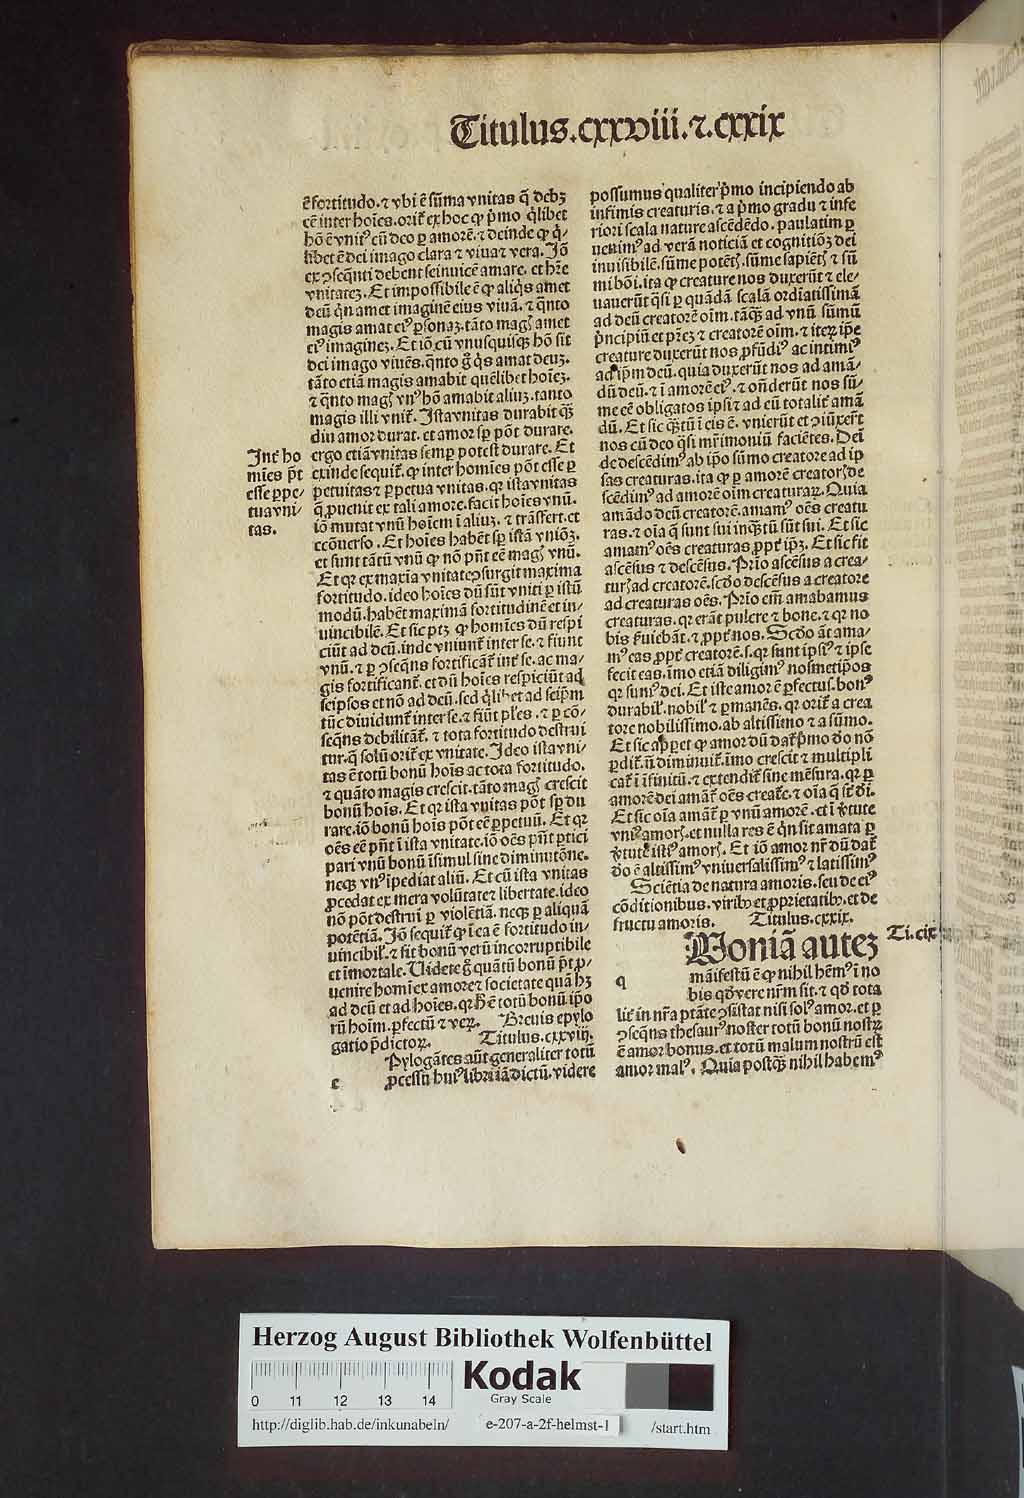 Titulus.cxxviii.⁊.cxxix
ē fortitudo.⁊ vbi ē sūma vnitas q̄ debꝫ
eē inter hoīes.orit᷑ ex hoc ꝙ p̄mo q̄libet
hō ē vnitꝰ cū deo ꝑ amorē.⁊ deinde ꝙ q̄-
libet ē dei imago clara ⁊ viua ⁊ vera. Iō
ex ꝯseq̄nti debent se inuicē amare. et hr̄e
vnitateꝫ. Et impossibile ē ꝙ aliq̄s amet
deū qn̄ amet imaginē eius viuā. ⁊ q̄nto
magis amat eiꝰ ꝑsonaꝫ.tāto magꝭ amet
eiꝰ imagineꝫ. Et iō cū vnusquisqꝫ hō sit
dei imago viuēs.q̄nto gͦ q̄s amat deuꝫ.
tāto etiā magis amabit quēlibet hoīeꝫ.
⁊ q̄nto magꝭ vnꝰ hō amabit aliuꝫ.tanto
magis illi vnit᷑. Ista vnitas durabit q̄ꝫ
diu amor durat. et amor sꝑ pōt durare.
ergo etiā vnitas semꝑ potest durare. Et
exinde sequit᷑. ꝙ inter homīes pōt esse ꝑ
petuitas ⁊ ꝑpetua vnitas. qꝛ ista vnitas
q̄ ꝓuenit ex tali amore.facit hoīes vnū.
iō mutat vnū hoīem ī aliuꝫ. ⁊ trāsfert.et
ecōuerso. Et hoīes habēt sꝑ istā vniōꝫ.
et sunt tātū vnū ꝙ nō pn̄t eē magꝭ vnū.
Et qꝛ ex maxīa vnitate ꝯsurgit maxima
fortitudo.ideo hoīes dū sūt vniti ꝑ istū
modū.habēt maximā fortitudinē et in-
uincibilē. Et sic ptꝫ ꝙ homīes dū respi
ciūt ad deū.inde vniunt᷑ inter se.⁊ fiunt
vnū.⁊ ꝑ ꝯseq̄ns fortificāt᷑ int᷑ se.ac ma-
gis fortificant᷑.et dū hoīes respiciūt ad
seipsos et nō ad deū.sed q̄libet ad seipm̄
tūc diuidunt᷑ inter se.⁊ fiūt pl̄es.⁊ ꝑ cō-
seq̄ns debilitāt᷑. ⁊ tota fortitudo destrui
tur.q̄ solū orit᷑ ex vnitate. Ideo ista vni-
tas ē totū bonū hoīs ac tota fortitudo.
⁊ quāto magis crescit.tāto magꝭ crescit
bonū hoīs. Et qꝛ ista vnitas pōt sꝑ du
rare.iō bonū hoīs pōt eē ꝑpetuū. Et qꝛ
oēs eē pn̄t ī ista vnitate.iō oēs pn̄t ꝑtici
pari vnū bonū īsimul sine diminutōne.
neqꝫ vnꝰ īpediat aliū. Et cū ista vnitas
ꝓcedat ex mera volūtate ⁊ libertate.ideo
nō pōt destrui ꝑ violētiā. neqꝫ ꝑ aliquā
potētiā. Iō sequit᷑ ꝙ ī ea ē fortitudo in-
uincibil᷑.⁊ fit bonū verū incorruptibile
et īmortale. Uidete gͦ quātū bonū pōt ꝓ-
uenire homī ex amore ⁊ societate quā hꝫ
ad deū et ad hoīes.qꝛ h̄ ē totū bonū ip̄o
rū hoīm.ꝑfectū ⁊ veꝝ. Breuis epylo
gatio p̄dictoꝝ. Titulus.cxxviij.
e Pylogātes aūt generaliter totū
ꝓcessū huiꝰ libri iā dictū.videre
Int᷑ ho
mīes pōt
esse ꝑpe-
tua vni-
tas.
possumus qualiter p̄mo incipiendo ab
infimis creaturis.⁊ a p̄mo gradu ⁊ infe
riori scala nature ascēdēdo. paulatim ꝑ
uenimꝰ ad verā noticiā et cognitiōꝫ dei
inuisibilē.sūme potētꝭ.sūme sapiētꝭ ⁊ sū
mi bōi.ita ꝙ creature nos duxerūt ⁊ ele-
uauerūt q̄si ꝑ quādā scalā ordīatissimā
ad deū creatorē oīm.tāqꝫ ad vnū sūmū
pn̄cipiū et pr̄eꝫ ⁊ creatorē oīm.⁊ iteꝝ ip̄e
creature duxerūt nos ꝓfūdiꝰ ac intimiꝰ
ad ip̄m deū.quia duxerūt nos ad amā-
dū deū.⁊ ī amorē eiꝰ.⁊ on̄derūt nos sū-
me eē obligatos ipsi ⁊ ad eū totalit᷑ amā
dū. Et sic q̄ꝫtū ī eis ē. vnierūt et ꝯiūxert̄
nos cū deo q̄si mr̄imoniū faciētes. Dei
de descēdimꝰ ab ip̄o sūmo creatore ad ip
sas creaturas.ita ꝙ ꝑ amorē creatorꝭ de
scēdimꝰ ad amorē oīm creaturaꝝ. Quia
amādo deū creatorē.amamꝰ oēs creatu
ras.⁊ oīa q̄ sunt sui inqꝫtū sūt sui. Et sic
amamꝰ oēs creaturas ꝓpt᷑ ip̄ꝫ. Et sic fit
ascēsus ⁊ descēsus. Prīo ascēsus a crea-
turꝭ ad creatorē.scd̄o descēsus a creatore
ad creaturas oēs. Prīo em̄ amabamus
creaturas.qꝛ erāt pulcre ⁊ bone.⁊ qꝛ no
bis ẜuiebāt.⁊ ꝓpt᷑ nos. Scd̄o āt ama-
mꝰ eas ꝓpt᷑ creatorē.s.qꝛ sunt ipsiꝰ ⁊ ipse
fecit eas.imo etiā diligimꝰ nosmetip̄os
qꝛ sumꝰ dei. Et iste amor ē ꝑfectus.bonꝰ
durabil᷑.nobil᷑ ⁊ ꝑmanēs. qꝛ orit᷑ a crea
tore nobilissimo.ab altissimo ⁊ a sūmo.
Et sic apꝑet ꝙ amor dū dat᷑ p̄mo do nō
ꝑdit᷑.n̄ diminuit᷑.imo crescit ⁊ multipli
cat᷑ ī īfinitū.⁊ extendit᷑ sine mēsura.qꝛ ꝑ
amorē dei amāt᷑ oēs create.⁊ oīa q̄ st̄ d̄i.
Et sic oīa amāt᷑ ꝑ vnū amorē.et ī v̓tute
vniꝰ amorꝭ.et nulla res ē qn̄ sit amata ꝑ
v̓tutē istiꝰ amorꝭ. Et iō amor nr̄ dū dat᷑
d̄o ē altissimꝰ vniuersalissimꝰ ⁊ latissimꝰ
Sciētia de natura amoris.seu de eiꝰ
cōditionibus.viribꝰ et ꝓprietatibꝰ.et de
fructu amoris. Titulus.cxxix.
Ti.cix
q Uoniā auteꝫ
māifestū ē ꝙ nihil hēmꝰ ī no
bis qd̄ vere nr̄m sit.⁊ qd̄ tota
lit᷑ in nr̄a ptāte ꝯsistat nisi solꝰ amor.et ꝑ
ꝯseq̄ns thesaurꝰ noster totū bonū nostꝝ
ē amor bonus.et totū malum nostrū est
amor malꝰ. Quia postqꝫ nihil habemꝰ
Herzog August Bibliothek Wolfenbüttel
0 11 12 13 14
Kodak
Gray Scale
http://diglib.hab.de/inkunabeln/ e-207-a-2f-helmst-1 /start.htm